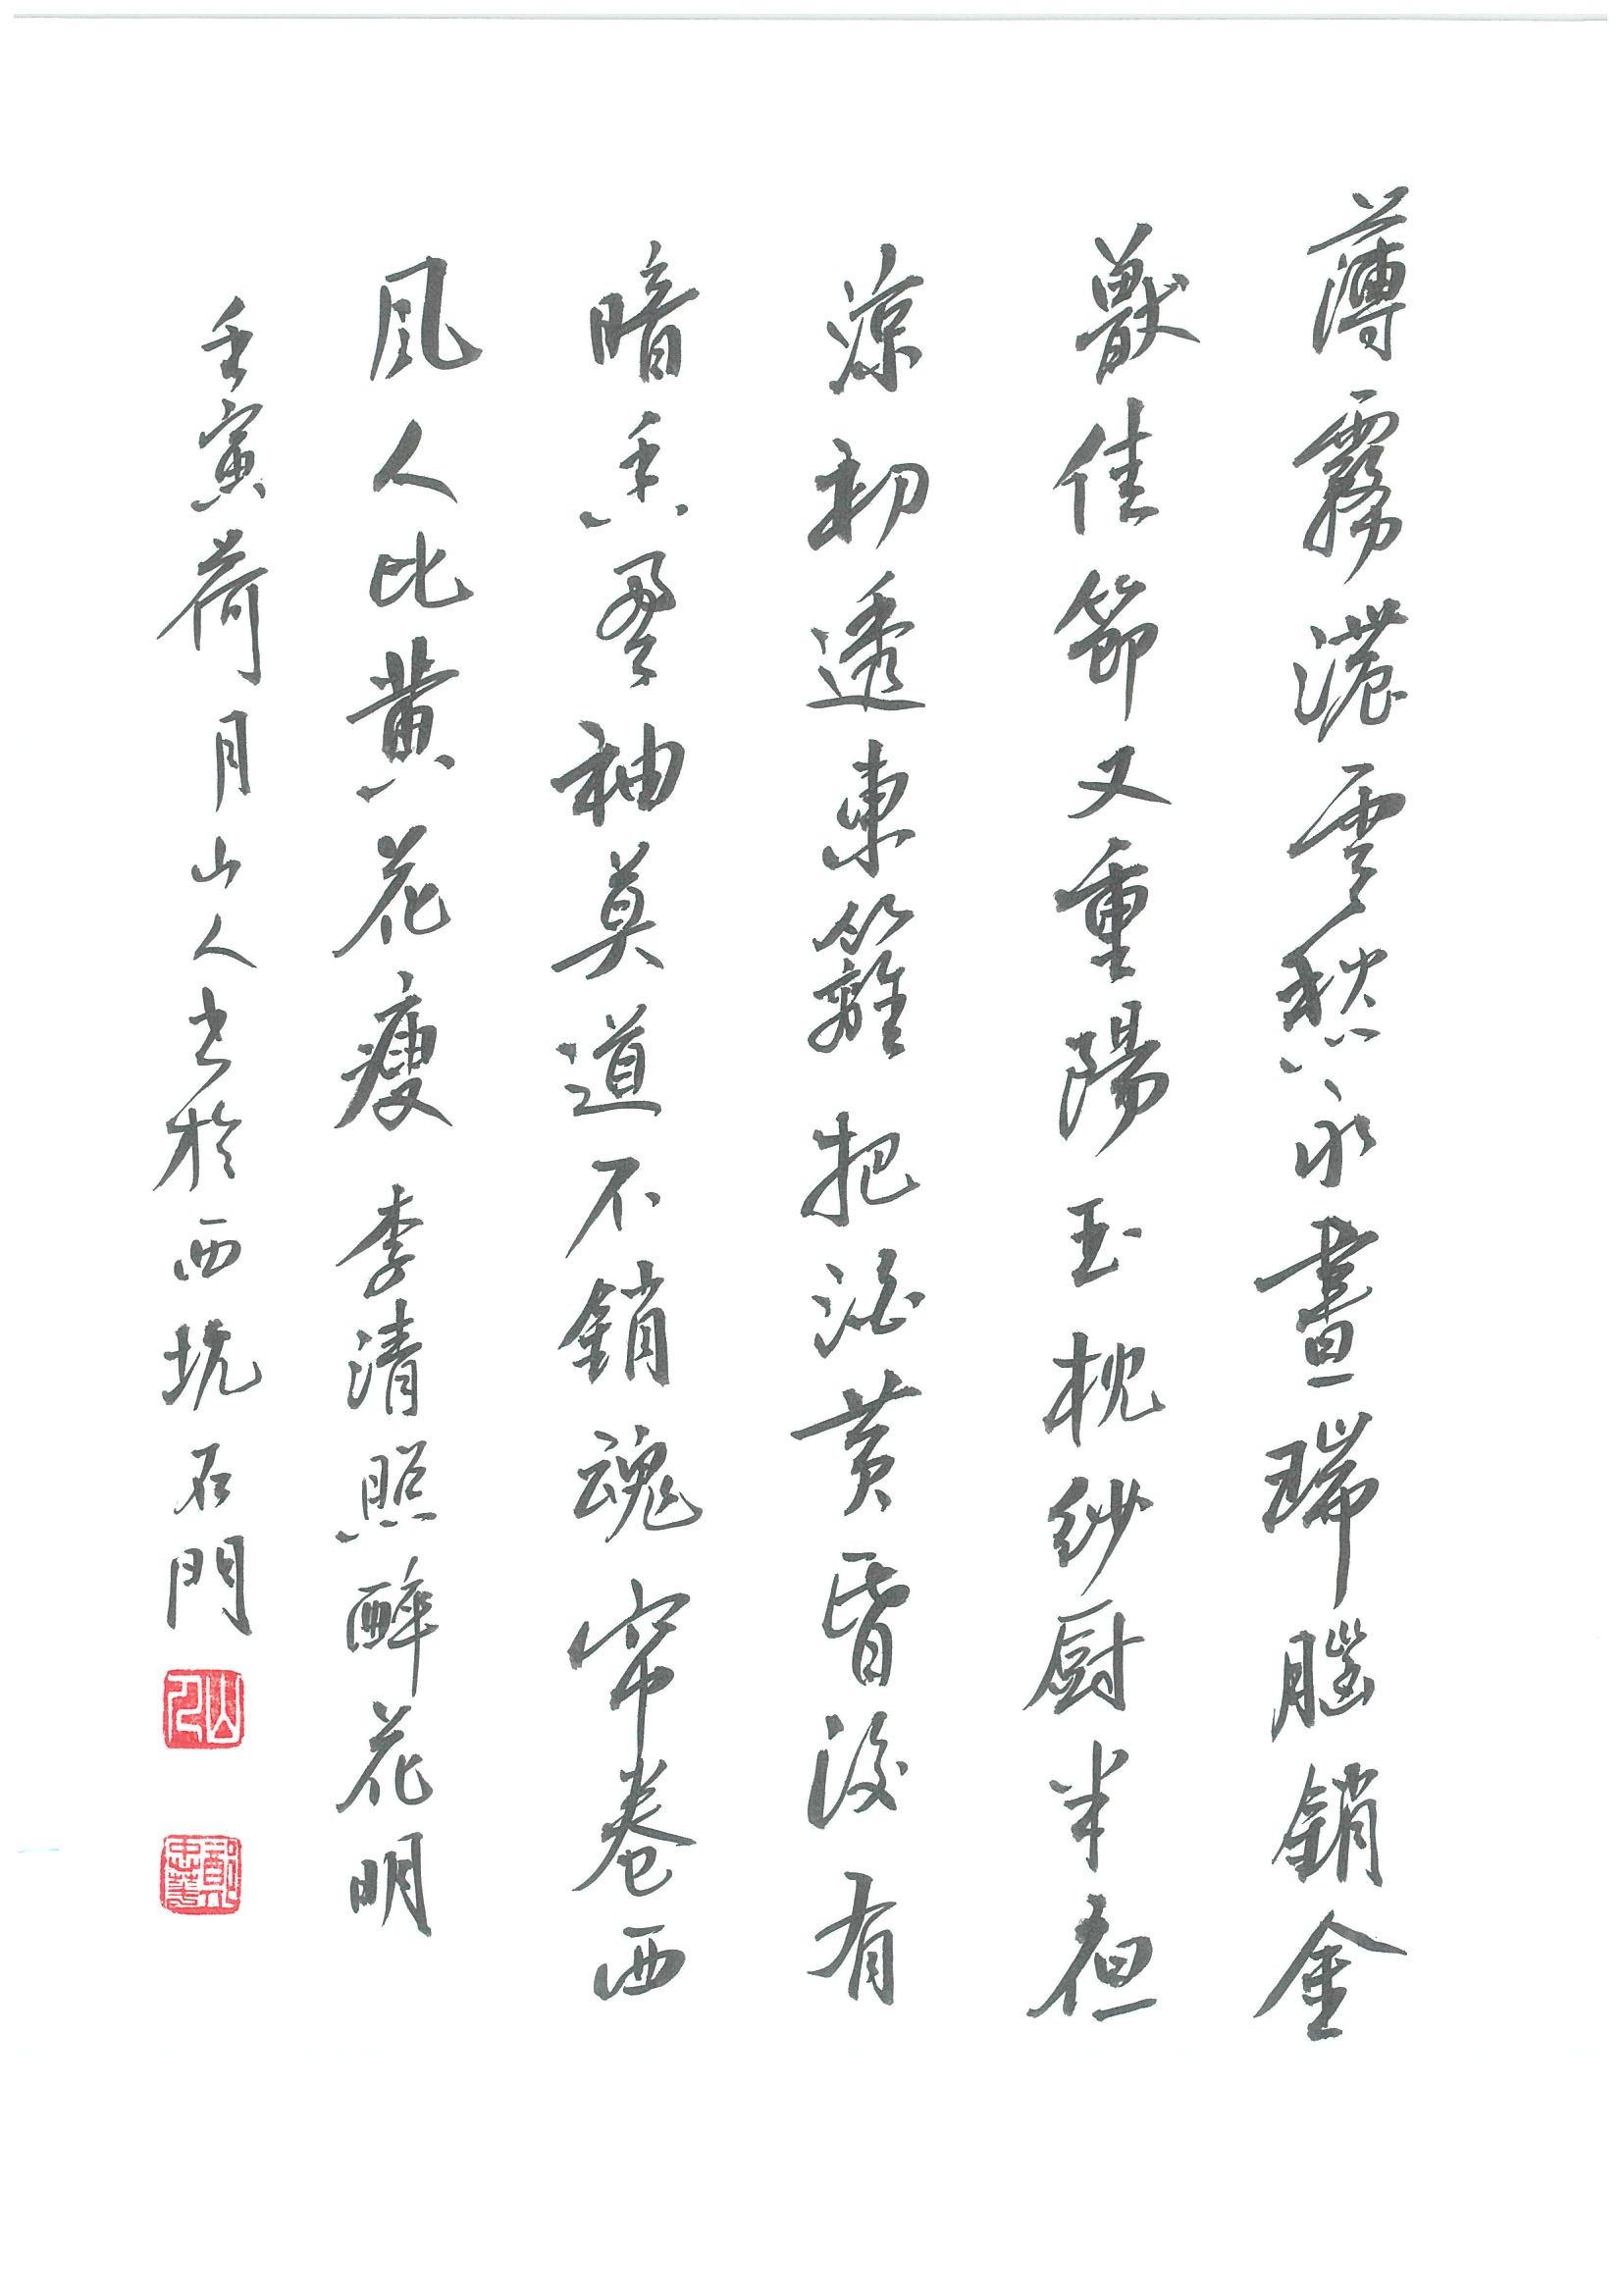 薄霧濃雲愁永晝瑞腦銷金
獸佳節又重陽玉枕紗厨半夜
涼初透東籬把酒黃昏後有
暗香盈袖莫道不銷魂帘卷西
風人比黃花瘦 李清照醉花明
壬寅荷月山人书於西坑石門
山人